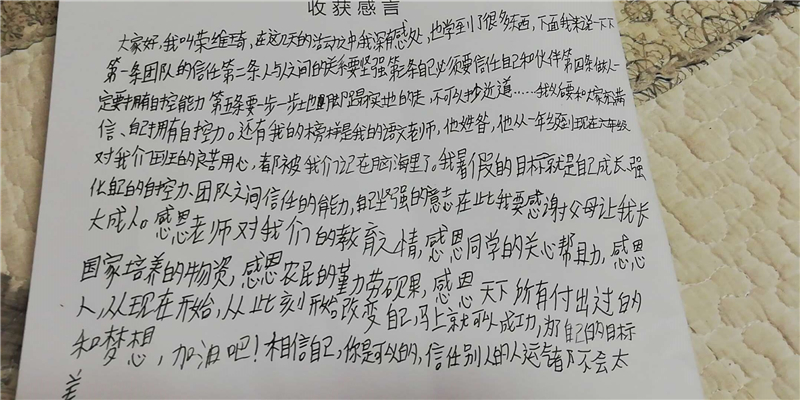 收获感言
大家好，我叫荣维琦，在这几天的活动之中我深有感处，也学到了很多东西，下面我来说一下下
第一条团队的信任第二条人与人之间的关系要坚强第三条自己必须要信任自己和伙伴第四条做人一
定要拥有自控能力第五条要一步一步土也脚踏实地的走，不可以抄近道……我以后要和大家充满
信、自己拥有自控力。还有我的榜样是我的语文老师，他姓昝，他从一年级到现在六年级
对我们班的良苦用心，都被我们记在脑海里了。我暑假的目标就是自己成长、强
化自己的自控力、团队之间信任的能力，自己坚强的意志在此我要感谢父母让我长
大成人。感恩老师对我们的教育之情，感恩同学的关心帮助，感恩
国家培养的物资，感恩农民的勤力劳硕果，感恩天下所有付出过的
人，从现在开始，从此刻开始改变自己，马上就可以成功，那自己的目标
和梦想，加油吧！相信自己，你是可以的，信任别人的人运气都不会太
差